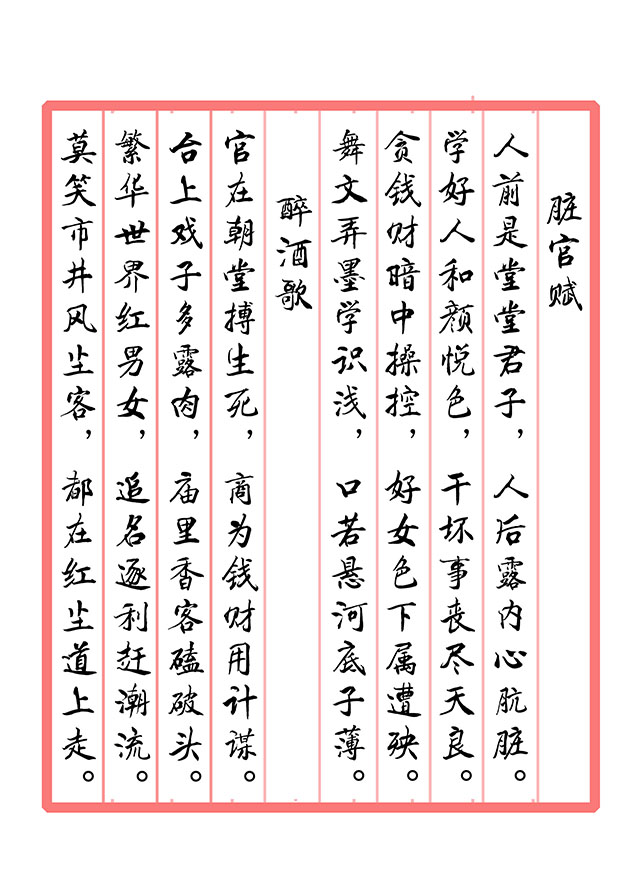 脏官赋
人前是堂堂君子，人后露内心肮脏。
学好人和颜悦色，干坏事丧尽天良。
贪钱财暗中操控，好女色下属遭殃。
舞文弄墨学识浅，口若悬河底子薄。
醉酒歌
官在朝堂搏生死，商为钱财用计谋。
台上戏子多露肉，庙里香客磕破头。
繁华世界红男女，追名逐利赶潮流。
莫笑市井风尘客，都在红尘道上走。